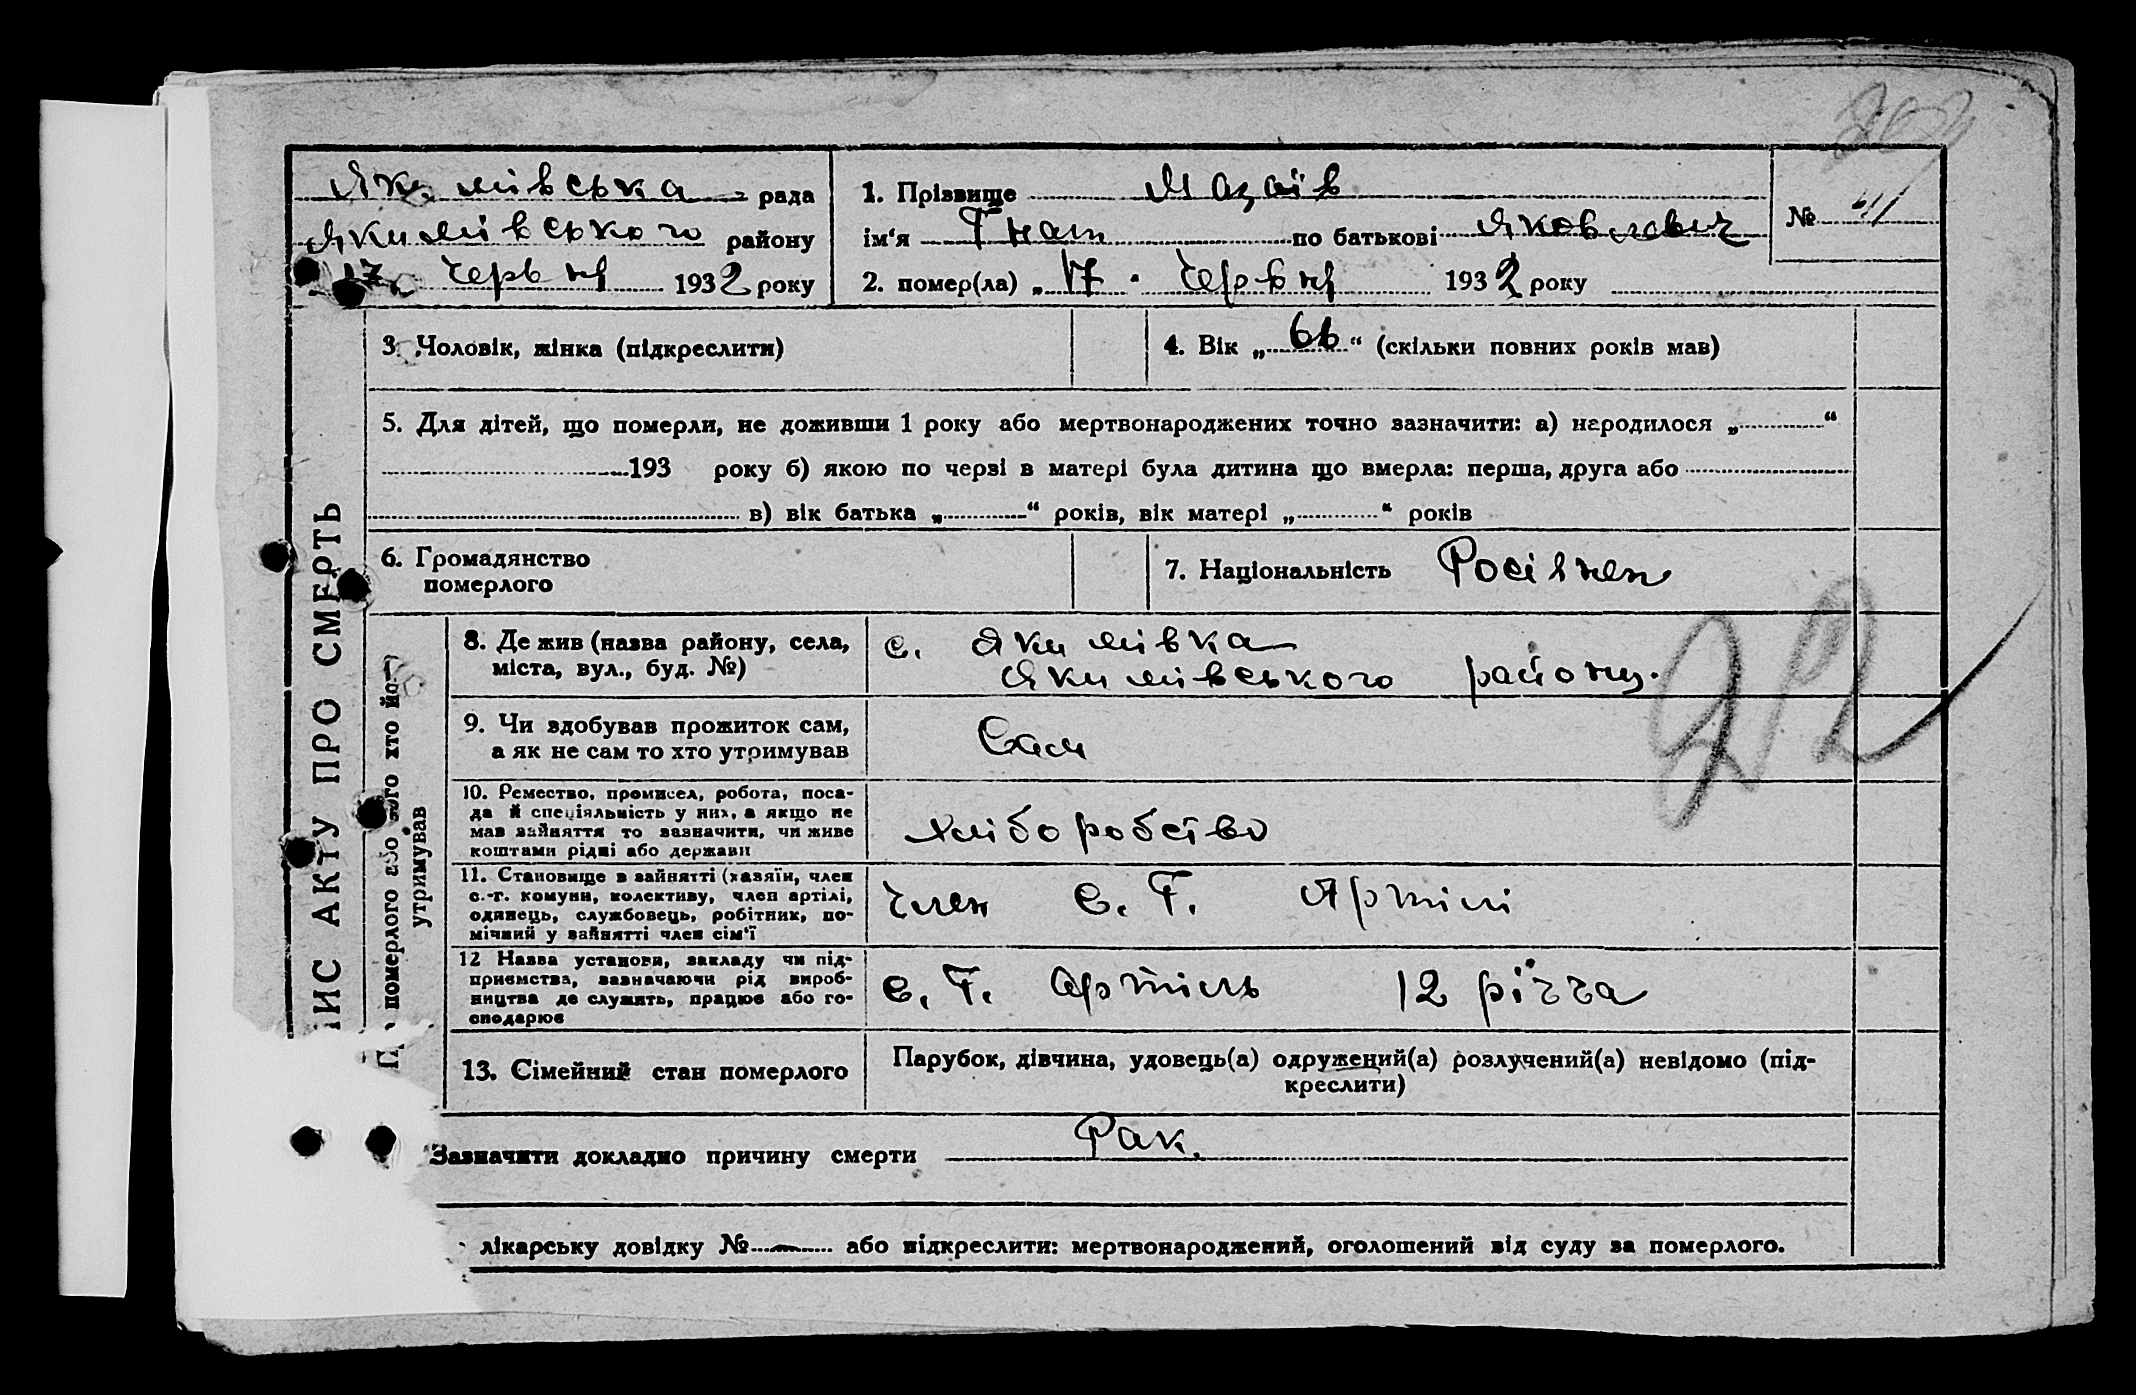 Якимівська рада
Якимівського району
17 червня 1932 року
1. Прізвище Мазаїв
ім'я Гнат по батькові Яковлевич
№ 41
2. помер(ла) „17" червня 1932 року
ИС АКТУ ПРО СМЕРТЬ
3. Чоловік, жінка (підкреслити)
4. Вік „66“ (скільки повних років мав)
5. Для дітей, що померли, не доживши 1 року або мертвонароджених точно зазначити: а) народилося „ “
193 року б) якою по черві в матері була дитина що вмерла: перша, друга або
в) вік батька „ “ років, вік матері „ “ років
6. Громадянство
померлого
7. Національність Росіянен
померлого або його хто його
утримував
8. Де жив (назва району, села,
міста, вул., буд. №)
с. Якимівка
Якимівського району.
9. Чи здобував прожиток сам,
а як не сам то хто утримував
Сам
10. Ремество, промисел, робота, поса-
да й спеціяльність у них, а якщо не
мав зайняття то зазначити, чи живе
коштами рідні або держави
хліборобство
11. Становище в зайнятті (хазяїн, член
с.-г. комуни, колективу, член артілі,
одинець, службовець, робітник, по-
мічний у зайнятті член сім'ї
член с. Г. Артілі
12 Назва установи, закладу чи під-
приємства, зазначаючи рід вироб-
ництва де служить, працює або го-
сподарює
с. Г. артіль 12 річча
13. Сімейний стан померлого
Парубок, дівчина, удовець(а) одружений(а) розлучений(а) невідомо (під-
креслити)
Зазначити докладно причину смерти Рак.
лікарську довідку № — або підкреслити: мертвонароджений, оголошений від суду за померлого.